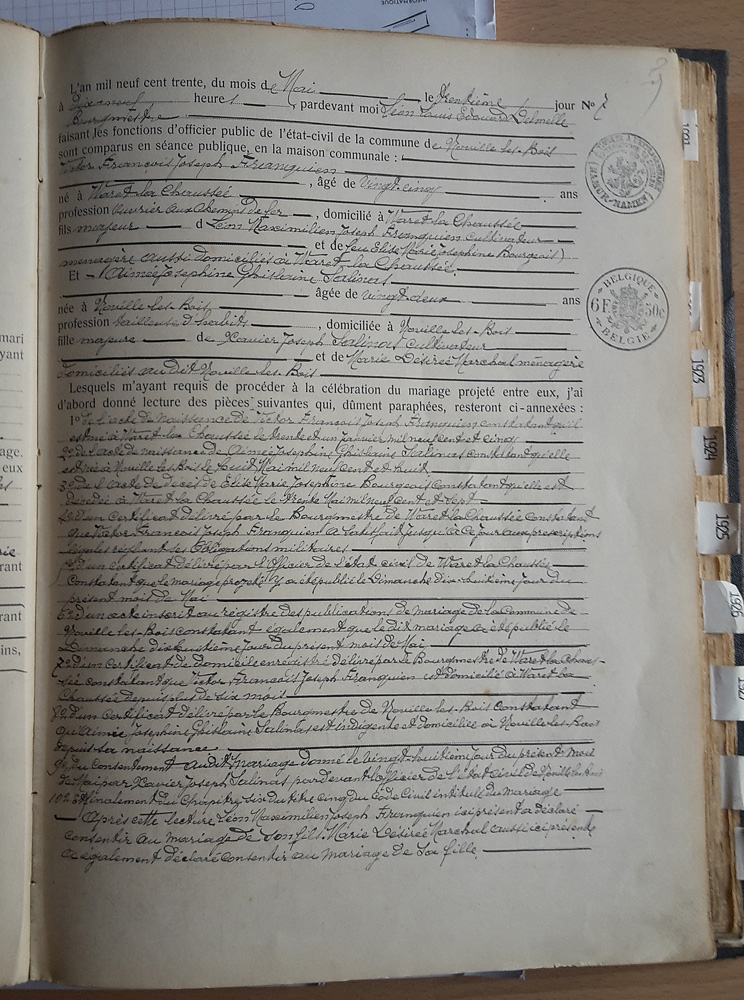 L'an mil neuf cent trente, du mois de Mai le trentième jour No 7
à Dix neuf heures, pardevant moi Léon Louis Edouard Delmelle
Bourgmestre
faisant les fonctions d'officier public de l'état-civil de la commune de Noville les-Bois
sont comparus en séance publique, en la maison communale :
Victor François Joseph Franquien
, âgé de vingt cinq ans
né à Waret la Chaussée
profession ouvrier aux chemins de fer, domicilié à Waret la Chaussée
fils majeur de Léon Maximilien Joseph Franquien cultivateur
et de feu Elise Marie Josephine Bourgeois)
ménagère aussi domiciliés à Waret la Chaussée.
Et Aimée Josephine Ghislaine Salinas
âgée de vingt deux ans
née à Noville-les-Bois
profession tailleuse d'habits, domiciliée à Noville-les-Bois
fille majeure de Xavier Joseph Salinas cultivateur
et de Marie Désirée Marchal ménagère
domiciliés au dit Noville-les-Bois
Lesquels m'ayant requis de procéder à la célébration du mariage projeté entre eux, j'ai
d'abord donné lecture des pièces suivantes qui, dûment paraphées, resteront ci-annexées :
1º de l'acte de naissance de Victor François Joseph Franquien constatant qu'il
est né à Waret-la Chaussée le trente et un janvier mil neuf cent et cinq
2º de l'acte de naissance de Aimée Josephine Ghislaine Salinas constatant qu'elle
est née à Noville les Bois le huit Mai mil neuf cent et huit
3º de l'acte de décès de Elise Marie Josephine Bourgeois constatant qu'elle est
décédée à Waret la Chaussée le trente Mai mil neuf cent et sept
4º d'un certificat délivré par le Bourgmestre de Waret la Chaussée constatant
que Victor François Joseph Franquien a satisfait jusqu'à ce jour aux prescriptions
légales réglant ses obligations militaires
5º d'un certificat délivré par l'Officier de l'état civil de Waret la Chaussée
constatant que le mariage projeté y a été publié le Dimanche dix-huitième jour du
présent mois de Mai
6º d'un acte inscrit au registre des publications de mariage de la Commune de
Noville les-Bois constatant également que le dit mariage a été publié le
Dimanche dix huitième jour du présent mois de Mai
7º d'un Certificat de domicile enregistré délivré par le Bourgmestre de Waret la Chaus-
sée constatant que Victor François Joseph Franquien est domicilié à Waret la
Chaussée depuis plus de six mois
8º d'un Certificat délivré par le Bourgmestre de Noville les-Bois constatant
qu'Aimée Josephine Ghislaine Salinas est indigente et domiciliée à Noville-les-Bois
depuis sa naissance
9º du consentement au dit Mariage donné le vingt-huitième jour du présent mois
de Mai par Xavier Joseph Salinas pardevant l'Officier de l'état civil de Noville les Bois
10º et finalement du Chapitre six du titre cinq du Code Civil intitulé du mariage
Après cette lecture Léon Maximilien Joseph Franquien ici présent a déclaré
consentir au mariage de son fils Marie Désirée Marchal aussi ici présente
a également déclaré consentir au mariage de sa fille
BELGIQUE
6F 50c
BELGIE
1923
1924
1925
1926